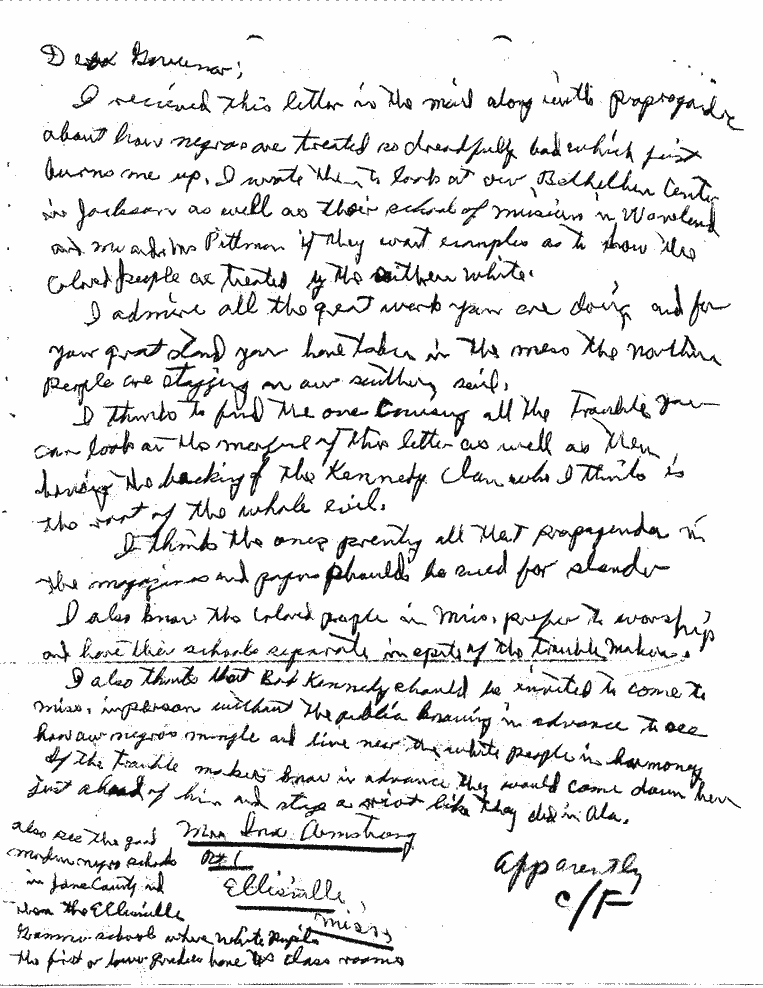 Dear Governor;
I recieved this letter in the mail along with propragandic
about how negros are treated so dreadfully bad which just
burns me up. I wrote them to look at our Bethelhem Center
in Jackson as well as their school of missions in Waveland
and Mr and Mrs Pittman if they want examples as to how the
colored people are treated by the southern white.
I admire all the great work your are doing and for
your great stand your have taken in the mess the northern
people are stagging on our southern soil.
I thinks to find the one causing all the trouble you
can look at the of this letter as well as them
having the backing of the Kennedy Clan who I thinks is
the root of the whole evil.
I thinks the ones all that propaganda in
the magazines and papers should be sued for slander
I also know the colored people in Miss. prefer to worship
and have their schools separate in spite of the trouble makers.
I also thinks that Bob Kennedy should be invited to come to
Miss. in person without the public knowing in advance to see
how our negros mingle and live near the white people in harmoney
If the trouble makers know in advance they would come down here
just ahead of him and stage a riot like they did in Ala.
also see the good
modern negro schools
in Jones County and
the Ellisville
Grammer school where white pupils
the first or lower grades have class rooms
Mrs Ina Armstrong
Rt 1
Ellisville,
Miss,
Apparently
c/F